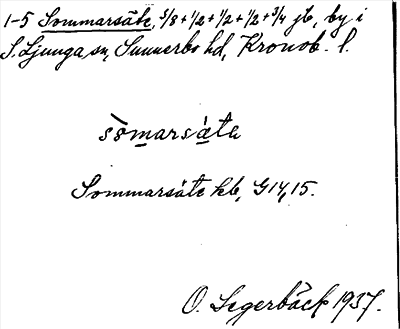 1-5 Sommarsäte, 5/8+1/2+1/2+1/2+3/4 jb, by i
S. Ljunga sn, Sunnerbo hd, Kronob. l.
sòmarsàta
Sommarsäte hb, G 14, 15.
O. Segerbäck 1937.